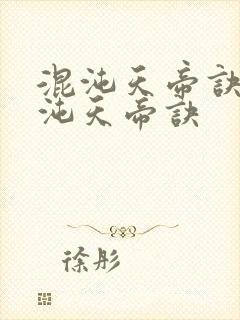 混沌天帝訣
沌天帝訣
徐彤